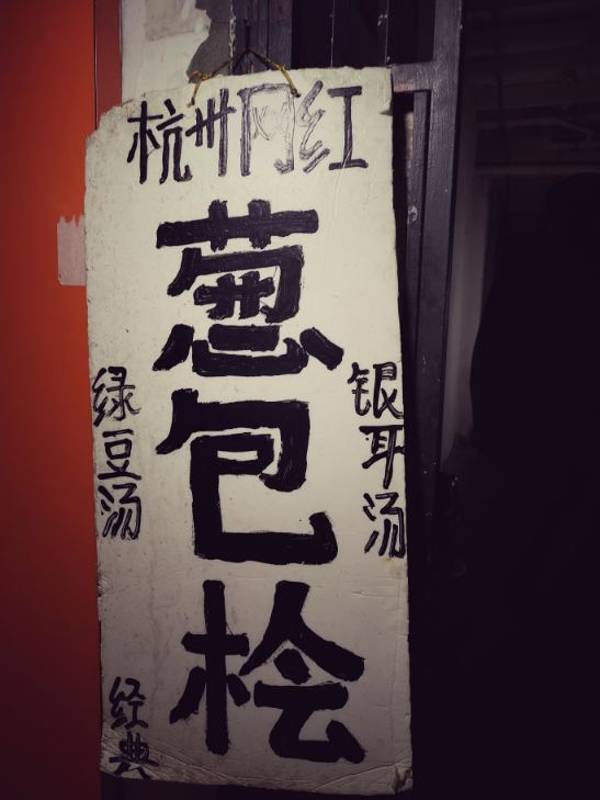 杭州网红
葱包桧
绿豆汤
银耳汤
经典